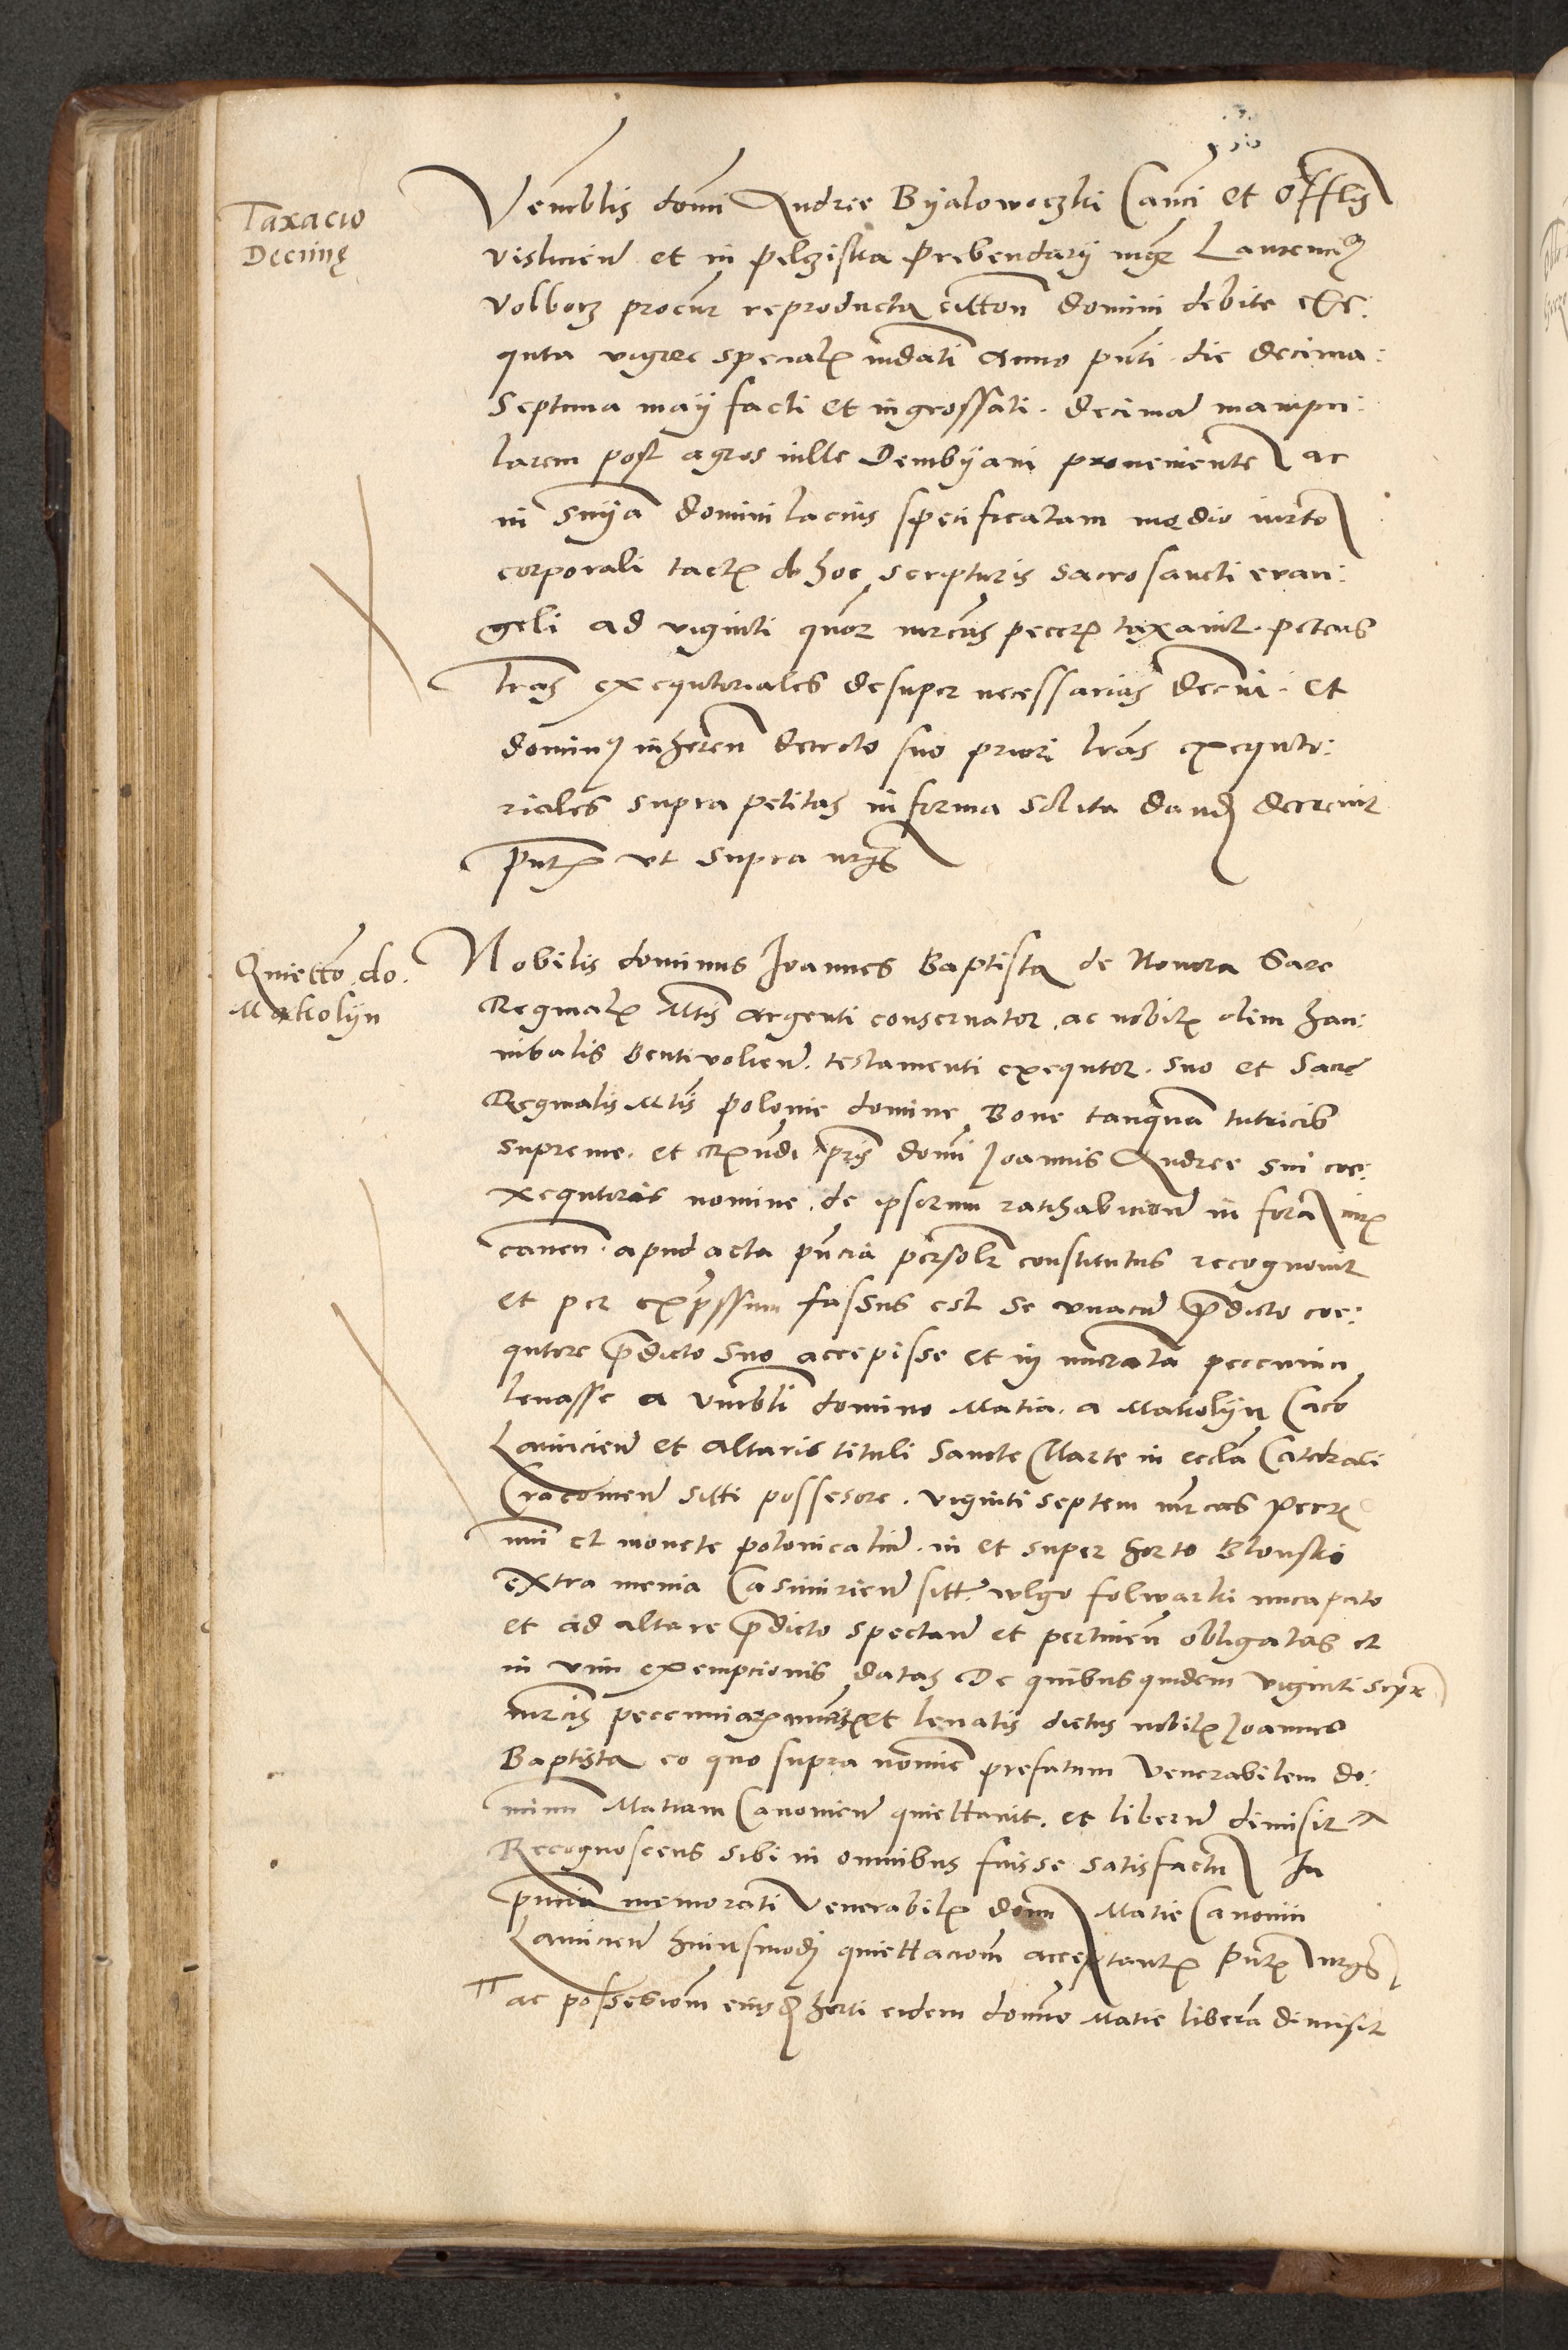 Taxacio
Decimę
Venerblis domi Andree Byalowoczki Canci et Offlis
vislicien et in pelcziska prebendarij mgr Laurencius
Volborz procur reproducta citton domini debite exe:
quta vigore specialis mdati Anno pnti die decima:
septima maij facti et ingrossati. decimam manipu:
larem post agros ville Dembyani proveniente ac
in snya domini lacius specificatam medio iurto
corporali tactis ob hoc scripturis sacrosancti evan:
geli ad viginti quor mrcas peccrum taxavit. petens
lras exequtoriales desuper necessarias decni. et
dominus inheren decreto suo priori lras exequto:
riales supra petitas in forma solita dand decrevit
pntibus vt supra
Quietto do.
Makolyn
Nobilis dominus Joannes Baptista de Novora Sacre
Reginalis Mtis argenti conservator. ac nobilis olim han:
nibalis Bentivolien. testamenti exequtor. suo et Sacre
Reginalis Mtis polonie domine Bone tanquam tutricis
supreme. et Rvndi pris domi Joannis Andree sui coe:
xequtoris nomine. de ipsorum ratihabicione in fora iuris
caven. apud acta pncia personalr constitutus recognovit
et per expssum fassus est se vnacum pdicto coe:
qutore pdicto suo accepisse et in numerata peccunia
levasse a Vnerbli domino Matia. a Makolyn Caco
Lanicien et altaris tituli Sancte Marte in eccla Catedrali
Cracovien sitti possesore. viginti septem mrcas peccrum
nui et monete polonicalium. in et super horto Blonski
extra menia Casimirien sitt. wlgo folwarki nucapato
et ad altare pdicto spectan et pertinen obligatas et
in vim exempcionis datas De quibusquidem viginti septe
mrcis peccuniarum et levatis dictus nobilis Joannes
Baptista eo quo supra nomine prefatum Venerabilem do:
minu Matiam Canonicum quiettavit. et liberum dimisit
Recognoscens sibi in omnibus fuisse satisfactu In
pncia memorati Venerabilis domi Matie Canonici
Lanicien huiusmodi quiettaciom acceptantis Pntibus
ac possessiom eiusd horti eidem domino Matie liberam dimisit